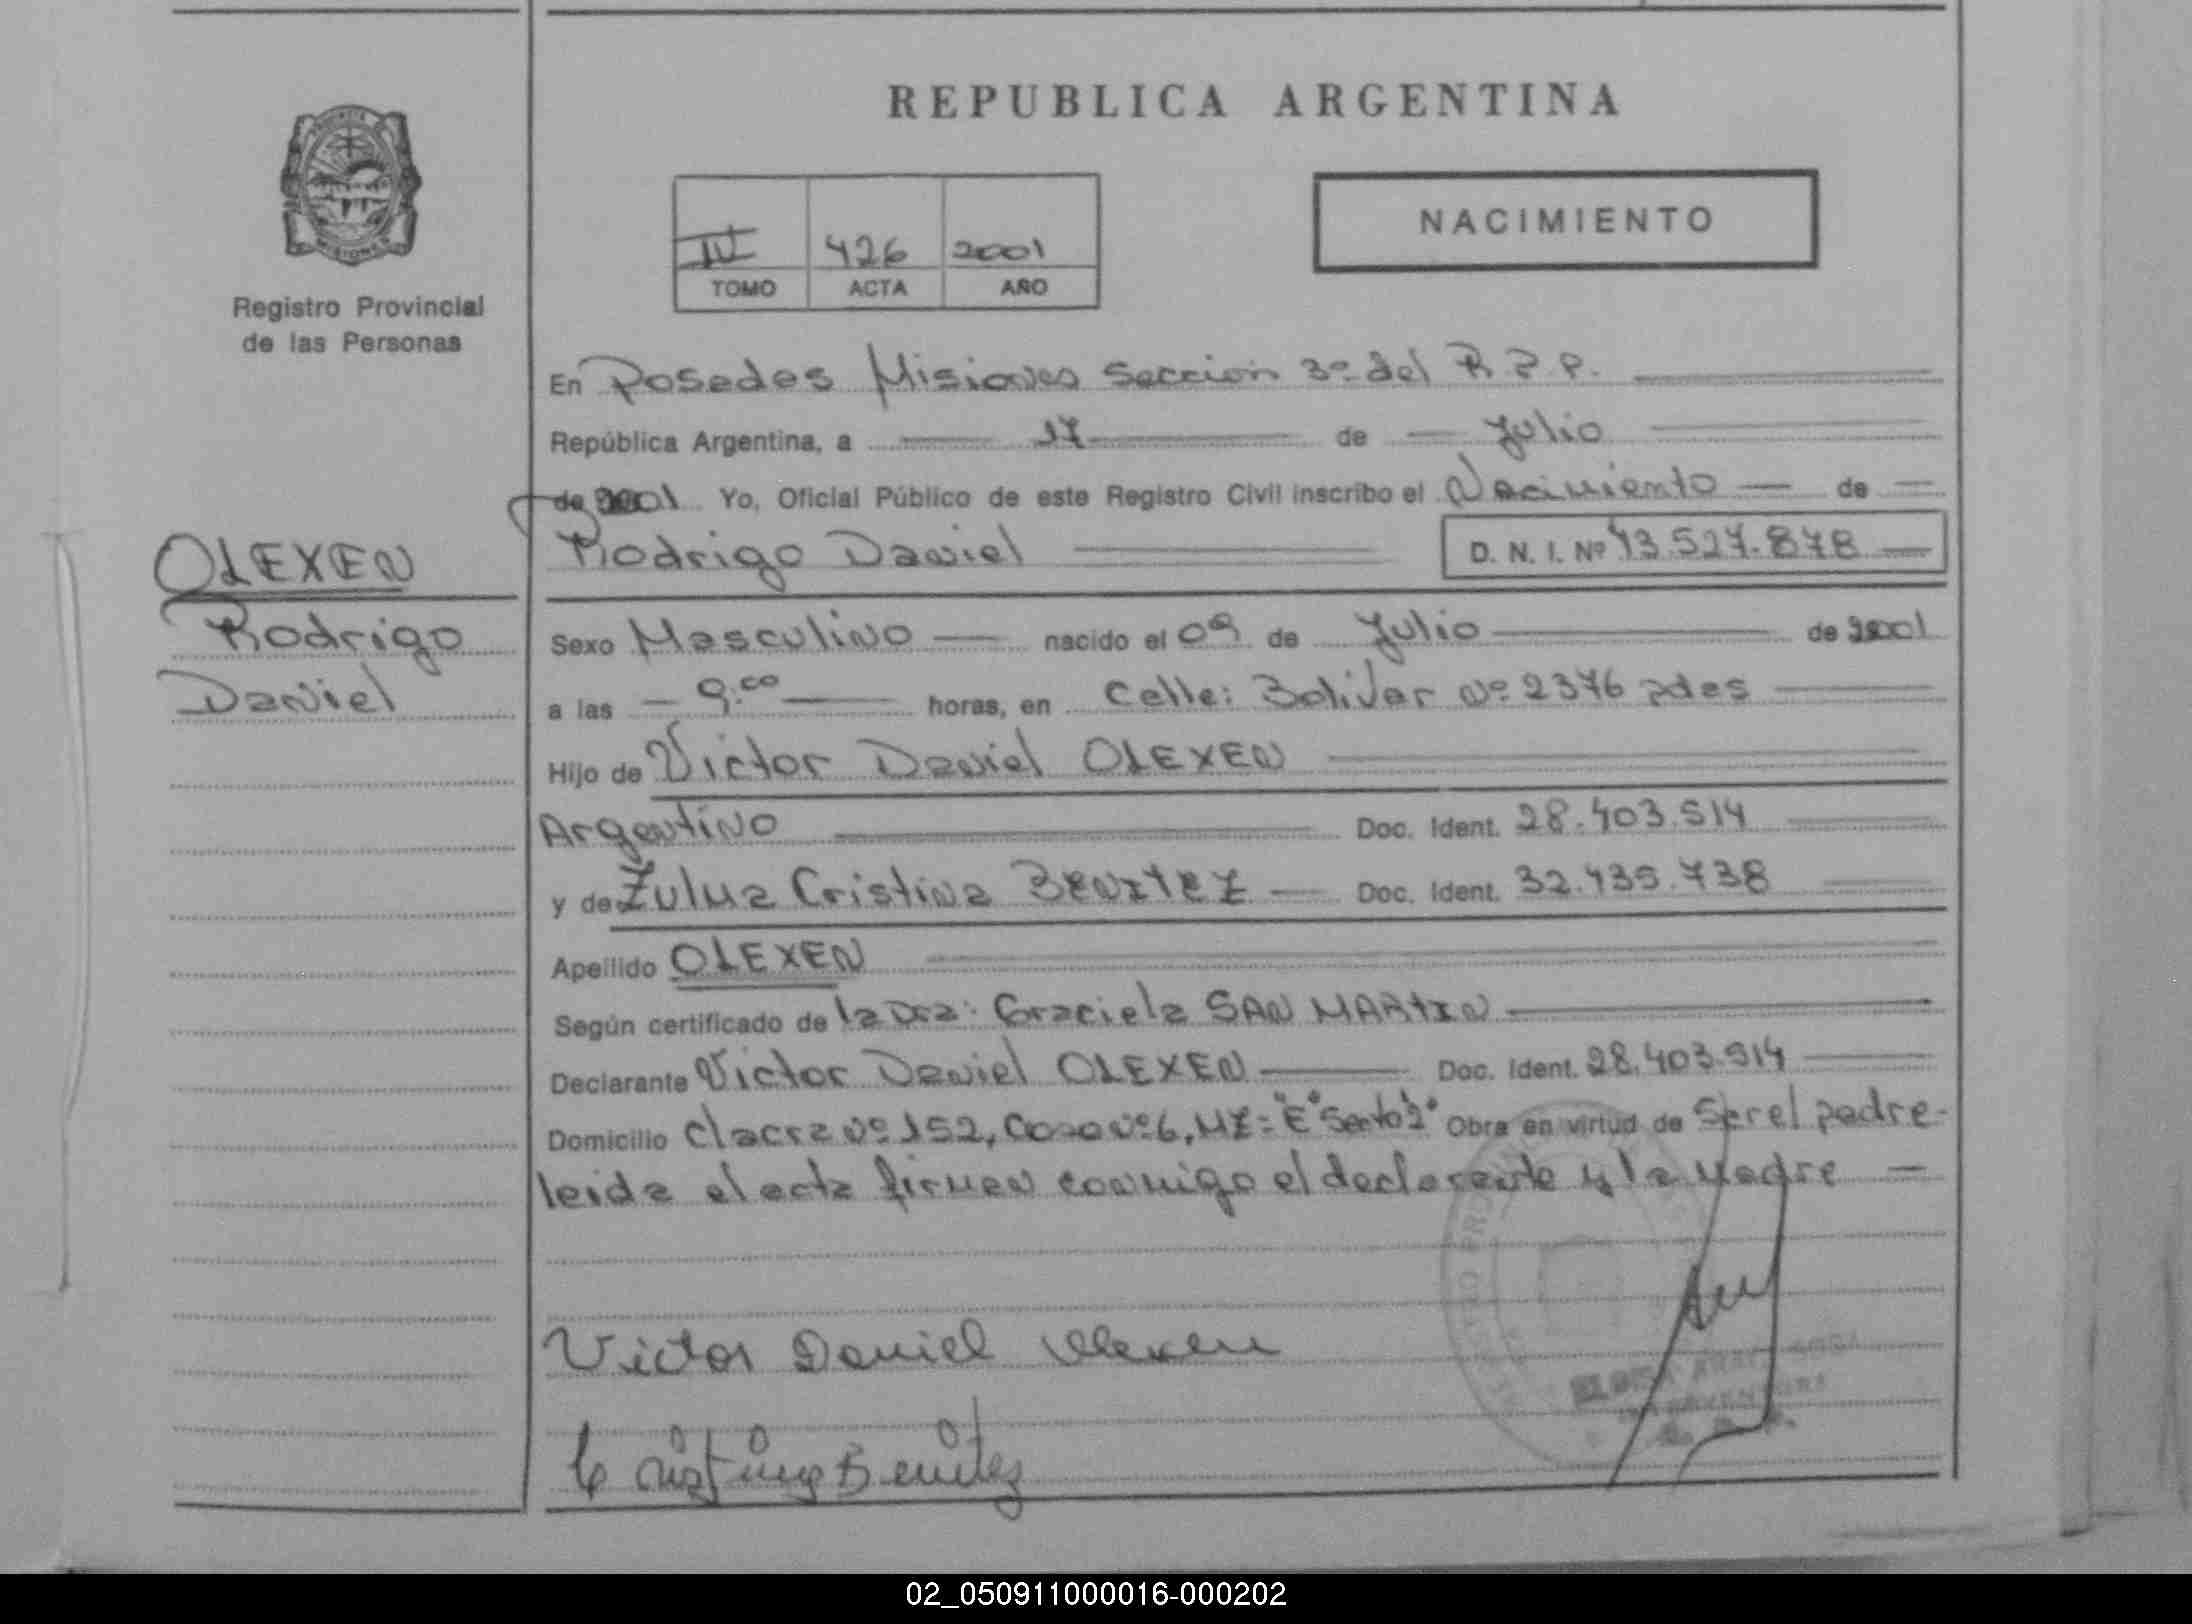 REPUBLICA ARGENTINA
NACIMIENTO
IV 426 2001
TOMO ACTA AÑO
Registro Provincial
de las Personas
En Posadas Misiones sección 3º del R.P.P.
República Argentina, a 17 de Julio
de 2001 Yo, Oficial Público de este Registro Civil inscribo el Nacimiento de
Rodrigo Daniel D. N. I. Nº 43.527.878
OLEXEN
Rodrigo
Daniel
Sexo Masculino nacido el 09 de Julio de 2001
a las 9:00 horas, en Calle: Bolivar Nº 2376 pdas
Hijo de Victor Daniel OLEXEN
Argentino Doc. Ident. 28.403.514
y de Zulma Cristina BENITEZ Doc. Ident. 32.435.738
Apellido OLEXEN
Según certificado de la Dra: Graciela SAN MARTIN
Declarante Victor Daniel OLEXEN Doc. Ident. 28.403.514
Domicilio Chacra Nº 152, Casa Nº 6, MZ= "E" Obra en virtud de Ser el padre-
leida el acta firman conmigo el declarante y la madre
Victor Daniel Olexen
Cristina Benitez
02_050911000016-000202